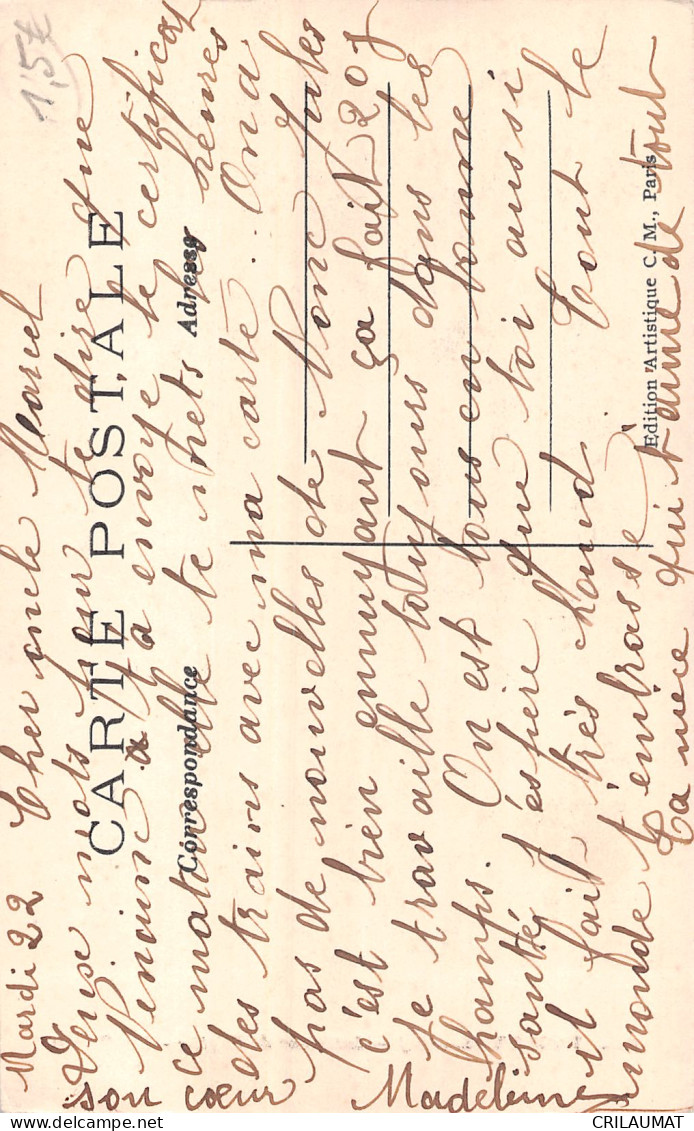 1,5€
Mardi 22 Cher oncle Marcel
Deux mots pour te dire que
t'a envoyé le certificat
ce matin elle te mets les heures
des trains avec ma carte. On a
pas de nouvelles de l'onc Jules
c'est bien ennuyant ça fait 20 j
Je travaille toujours dans les
champs. On est tous en bonne
santé j'éspère que toi aussi
il fait très chaud. Tout le
monde t'embrasse
Ta nièce qui t'aime de tout
son cœur Madeleine
CARTE POSTALE
Correspondance
Adresse
Edition Artistique C. M., Paris
CRILAUMAT